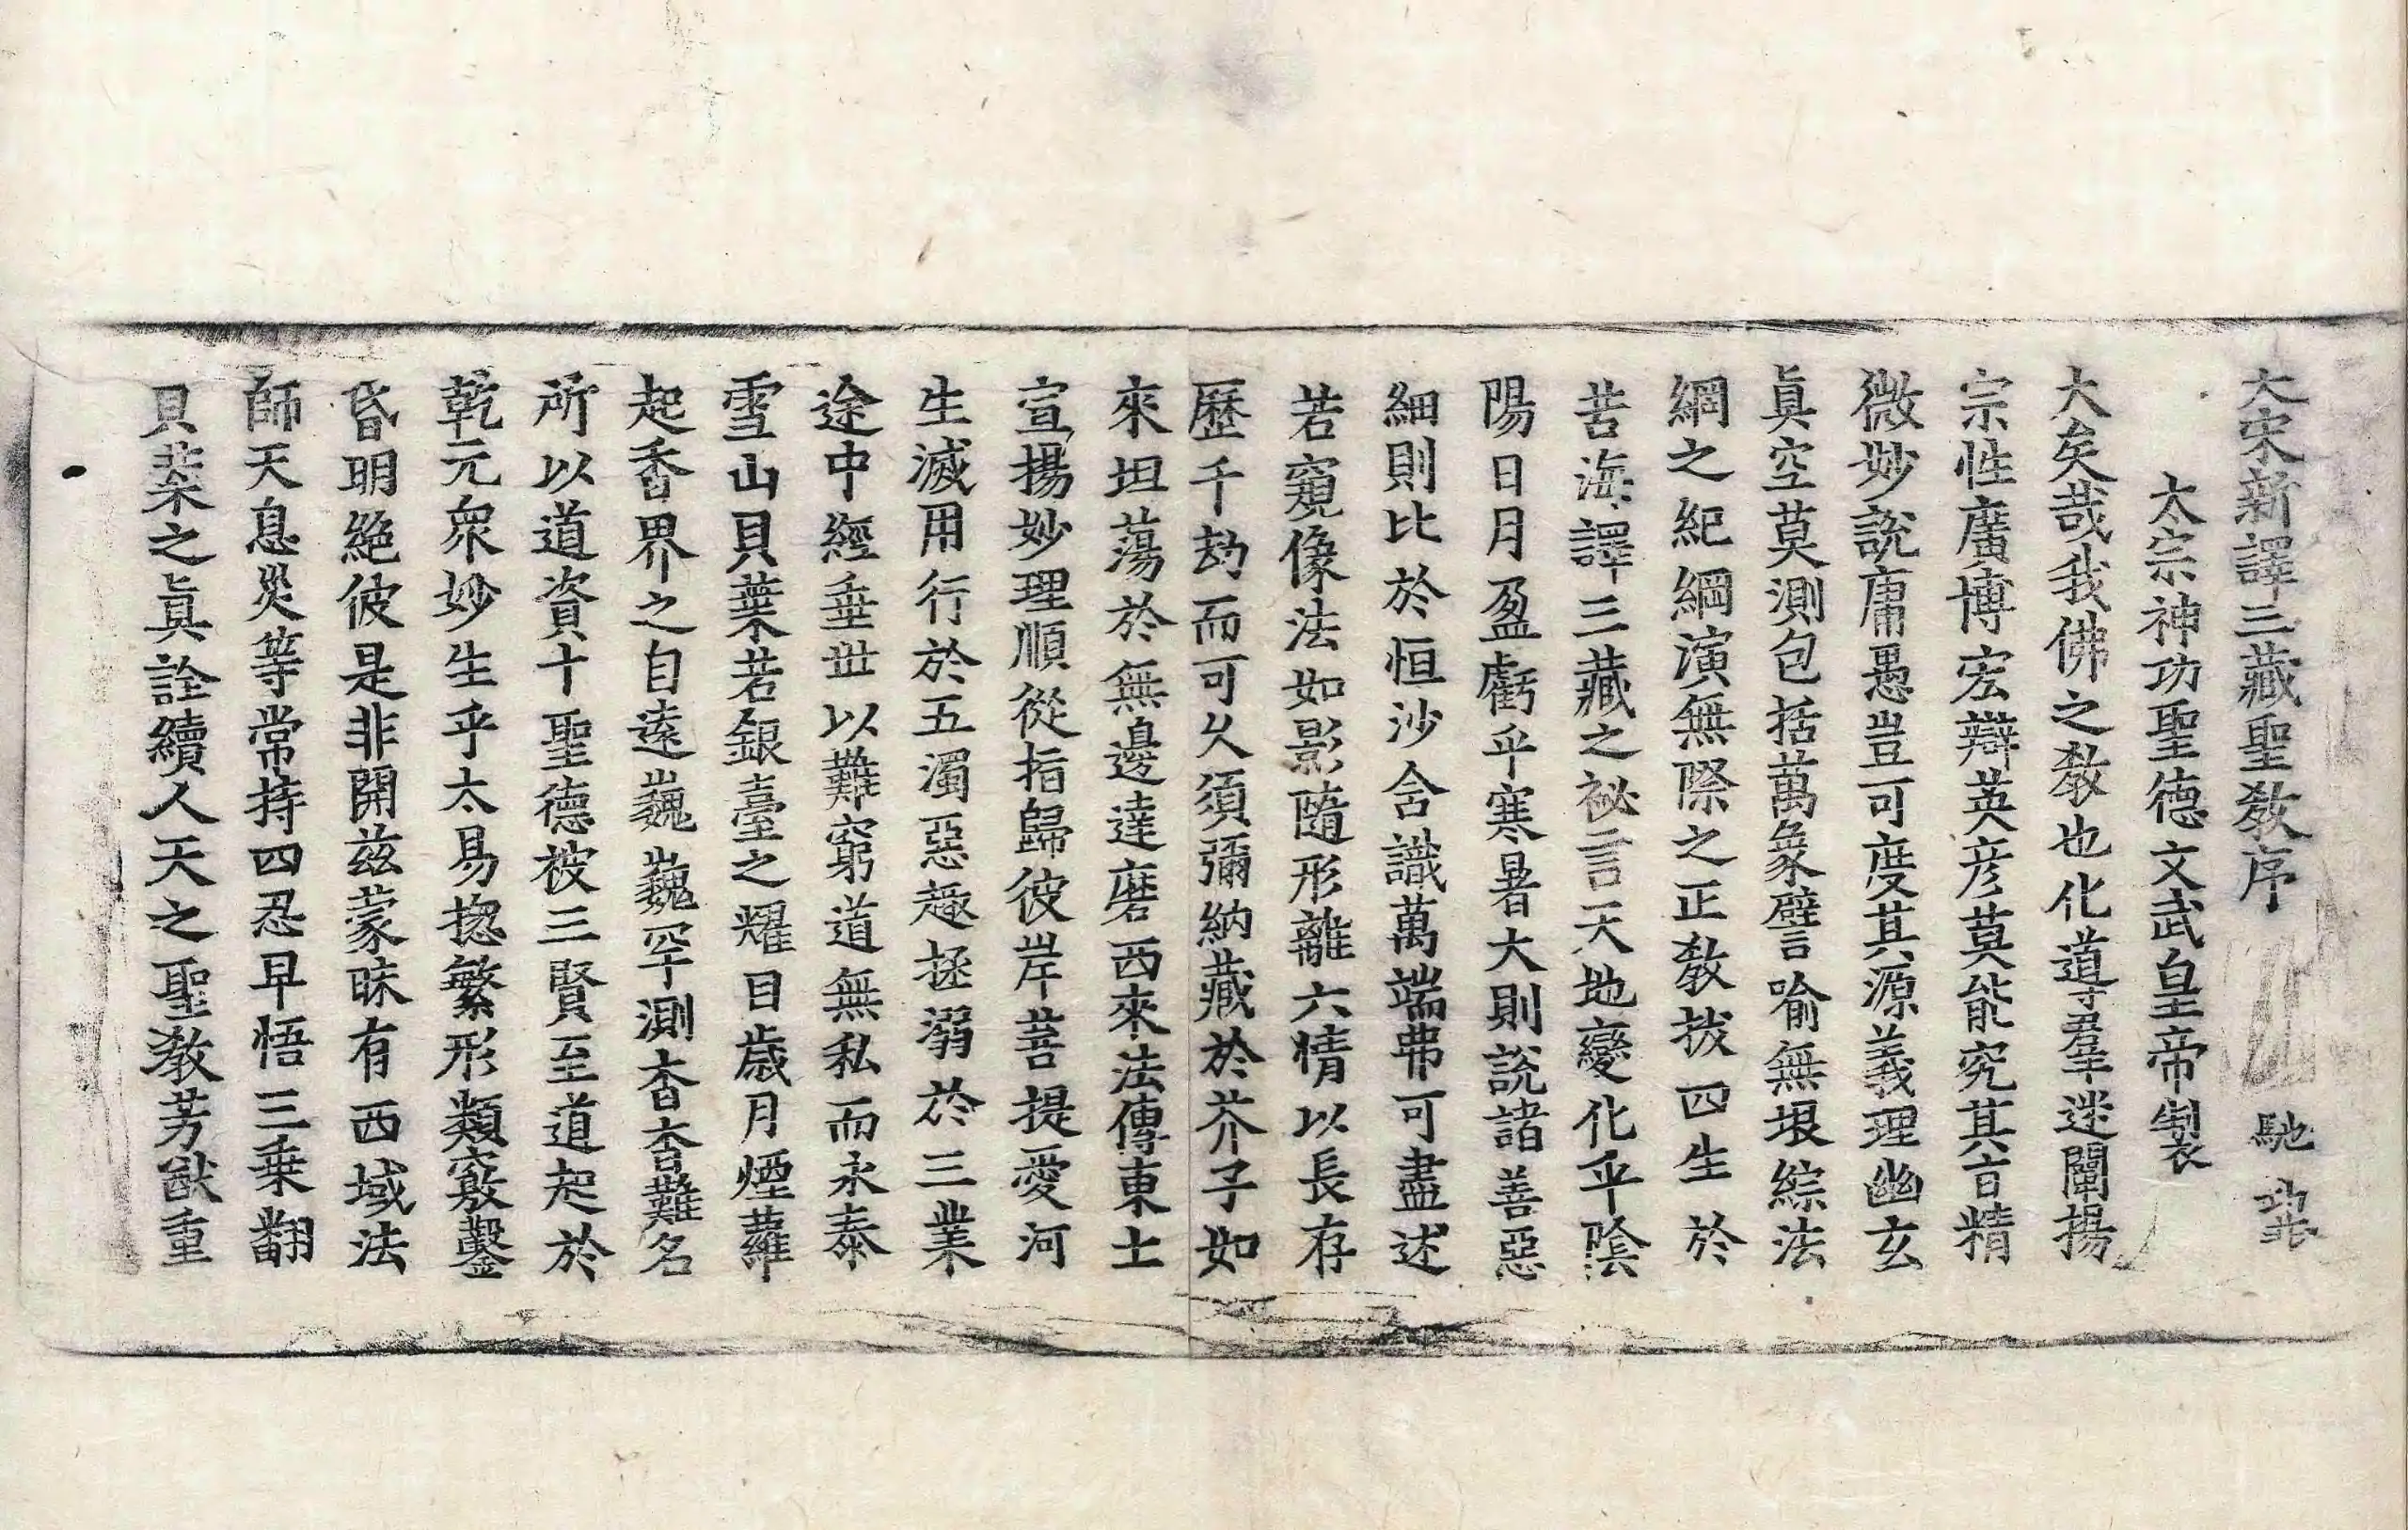 大宋新譯三藏聖教序 馳
太宗神功聖德文武皇帝製
大矣哉我佛之教也化導羣迷闡揚
宗性廣博宏辯英彦莫能究其旨精
微妙說庸愚豈可度其源義理幽玄
眞空莫測包括萬象譬喻無垠綜法
綱之紀綱演無際之正教拔四生於
苦海譯三藏之祕言天地變化乎陰
陽日月盈虧乎寒暑大則說諸善惡
細則比於恒沙含識萬端弗可盡述
若窺像法如影隨形離六情以長存
歷千劫而可久須彌納藏於芥子如
來坦蕩於無邊達磨西來法傳東土
宣揚妙理順從指歸彼岸菩提愛河
生滅用行於五濁惡趣拯溺於三業
途中經垂世以難窮道無私而永泰
雪山貝葉若銀臺之耀目歲月煙蘿
起香界之自遠巍巍罕測杳杳難名
所以道資十聖德被三賢至道起於
乾元衆妙生乎太易揔繁形類竅鑿
昏明絕彼是非開兹蒙昧有西域法
師天息災等常持四忍早悟三乗翻
貝葉之眞詮續人天之聖教芳猷重